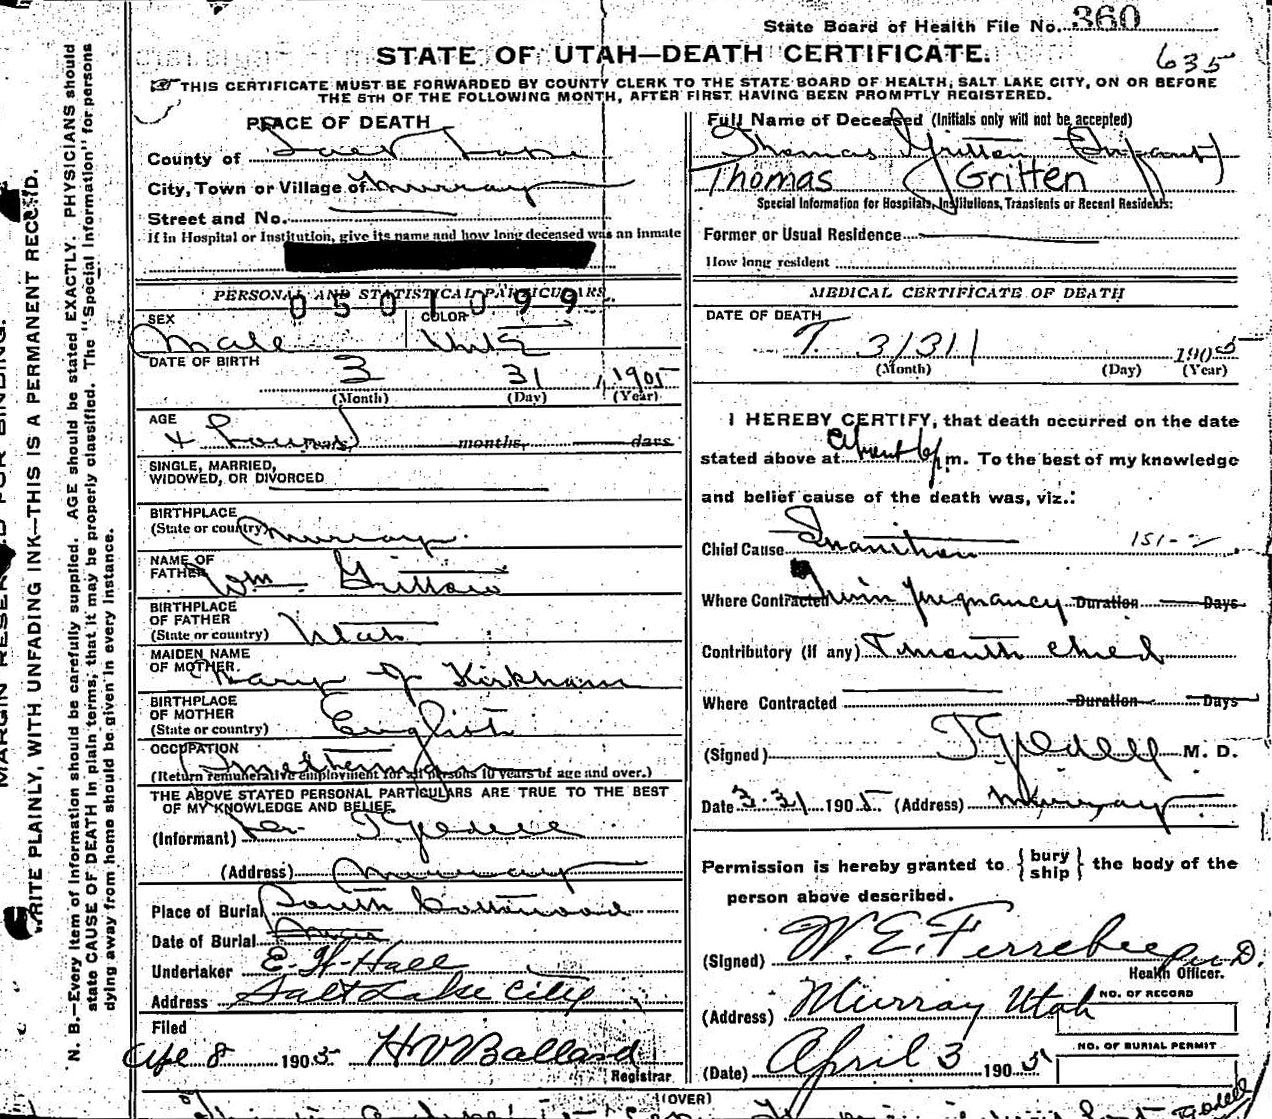 State Board of Health File No. 360
635
STATE OF UTAH—DEATH CERTIFICATE.
THIS CERTIFICATE MUST BE FORWARDED BY COUNTY CLERK TO THE STATE BOARD OF HEALTH, SALT LAKE CITY, ON OR BEFORE
THE 5TH OF THE FOLLOWING MONTH, AFTER FIRST HAVING BEEN PROMPTLY REGISTERED.
PLACE OF DEATH
County of Salt Lake
City, Town or Village of Murray
Street and No.
If in Hospital or Institution, give its name and how long deceased was an inmate
PERSONAL AND STATISTICAL PARTICULARS.
0501099
SEX
Male
COLOR
White
DATE OF BIRTH
3 31 1905
(Month) (Day) (Year)
AGE
4 hours years, months, days
SINGLE, MARRIED,
WIDOWED, OR DIVORCED
BIRTHPLACE
(State or country) Murray.
NAME OF
FATHER Wm Gritton
BIRTHPLACE
OF FATHER
(State or country) Utah
MAIDEN NAME
OF MOTHER. Mary J Kirkham
BIRTHPLACE
OF MOTHER
(State or country) English
OCCUPATION
Smelterman
(Return remunerative employment for all persons 10 years of age and over.)
THE ABOVE STATED PERSONAL PARTICULARS ARE TRUE TO THE BEST
OF MY KNOWLEDGE AND BELIEF.
(Informant) Dr.
(Address) Murray
Place of Burial South Cottonwood
Date of Burial
Undertaker E. H. Hall
Address Salt Lake City
Filed
Apl 8 1905 H V Ballard
Registrar
Full Name of Deceased (Initials only will not be accepted)
Thomas Gritten (Infant)
Thomas Gritten
Special Information for Hospitals, Institutions, Transients or Recent Residents:
Former or Usual Residence
How long resident
MEDICAL CERTIFICATE OF DEATH
DATE OF DEATH
3/31 1905
(Month) (Day) (Year)
I HEREBY CERTIFY, that death occurred on the date
stated above at about 6 p m. To the best of my knowledge
and belief cause of the death was, viz.:
Chief Cause Inanition 151-2
Where Contracted Twin pregnancy Duration Days
Contributory (if any) 7 month child
Where Contracted Duration Days
(Signed) M. D.
Date 3.31 1905 (Address) Murray
Permission is hereby granted to { bury ship } the body of the
person above described.
(Signed) W. E. Ferrebee M D.
Health Officer.
(Address) Murray Utah
(Date) April 3 1905
NO. OF RECORD
NO. OF BURIAL PERMIT
(OVER)
MARGIN RESERVED FOR BINDING.
WRITE PLAINLY, WITH UNFADING INK—THIS IS A PERMANENT RECORD.
N. B.—Every item of information should be carefully supplied. AGE should be stated EXACTLY. PHYSICIANS should
state CAUSE OF DEATH in plain terms, that it may be properly classified. The "Special Information" for persons
dying away from home should be given in every instance.